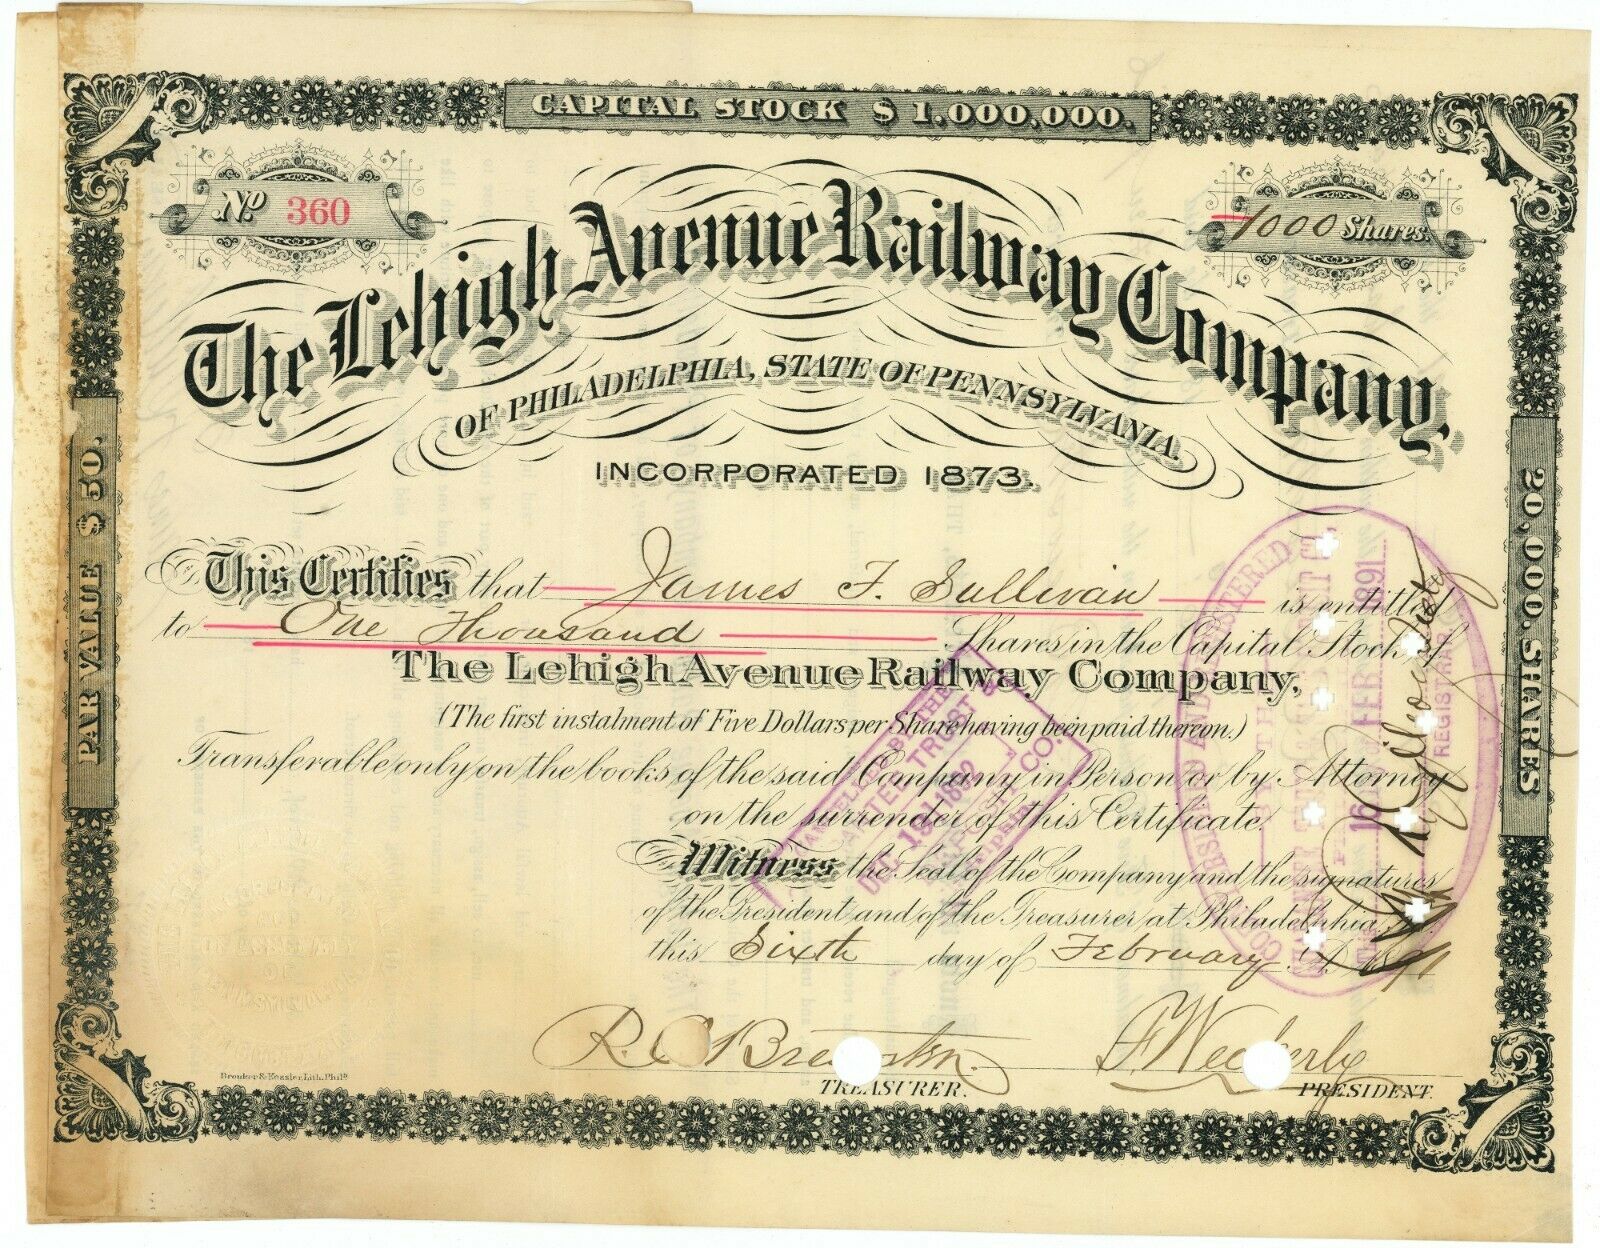 CAPITAL STOCK $ 1,000,000.
No. 360
1000 Shares.
The Lehigh Avenue Railway Company,
OF PHILADELPHIA, STATE OF PENNSYLVANIA.
INCORPORATED 1873.
PAR VALUE $ 50.
20,000. SHARES
This Certifies that James F. Sullivan is entitled
to One Thousand Shares in the Capital Stock of
The Lehigh Avenue Railway Company,
(The first instalment of Five Dollars per Share having been paid thereon.)
Transferable only on the books of the said Company in Person or by Attorney
on the surrender of this Certificate.
Witness the Seal of the Company and the signatures
of the President and of the Treasurer at Philadelphia,
this Sixth day of February A.D. 1891
TREASURER.
F. Weckerly
PRESIDENT.
Breuker & Kessler, Lith. Phila.
CANCELLED BY THE
CHARTER TRUST &
DEC 19 1892
CO.
COUNTERSIGNED AND REGISTERED
BY THE
16 FEB. 1891
REGISTRAR